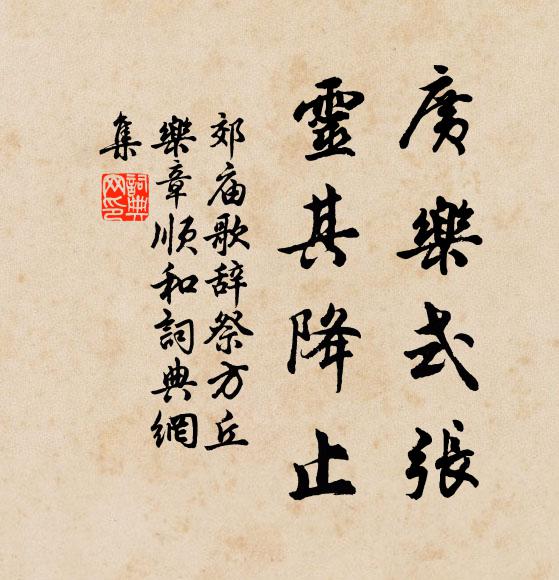 廣樂式張
靈其降止
郊庙歌辞祭方丘
樂章順和詞典網
集
詞典
网印